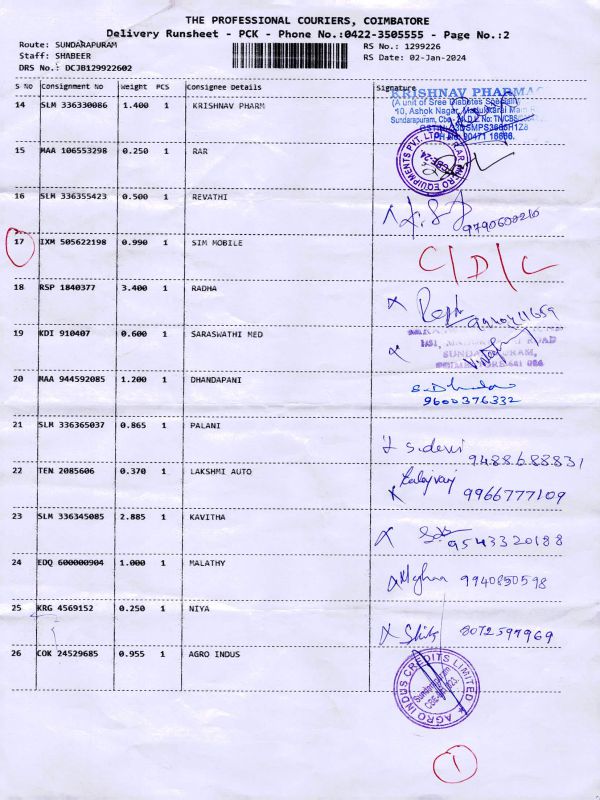 THE PROFESSIONAL COURIERS, COIMBATORE
Delivery Runsheet - PCK - Phone No.:0422-3505555 - Page No.:2
Route: SUNDARAPURAM RS No.: 1299226
Staff: SHABEER RS Date: 02-Jan-2024
DRS No.: DCJB129922602
S No Consignment No Weight PCS Consignee Details Signature
14 SLM 336330086 1.400 1 KRISHNAV PHARM
KRISHNAV PHARMAC
(A unit of Sree Diabetes Speciality
10, Ashok Nagar, Madukkarai Main R
15 MAA 106553298 0.250 1 RAR
RAR AGRO EQUIPMENTS PVT. LTD.
CBE-24.
16 SLM 336355423 0.500 1 REVATHI
9790600210
17 IXM 505622198 0.990 1 SIM MOBILE C/D/L
18 RSP 1840377 3.400 1 RADHA
19 KDI 910407 0.600 1 SARASWATHI MED
ROAD
20 MAA 944592085 1.200 1 DHANDAPANI
9600376332
21 SLM 336365037 0.865 1 PALANI S.devi
9488688831
22 TEN 2085606 0.370 1 LAKSHMI AUTO
9966777109
23 SLM 336345085 2.885 1 KAVITHA
9543320188
24 EDQ 600000904 1.000 1 MALATHY 9940850598
25 KRG 4569152 0.250 1 NIYA 8072597969
26 COK 24529685 0.955 1 AGRO INDUS
AGRO INDUS CREDITS LIMITED
Sundarapuram
1